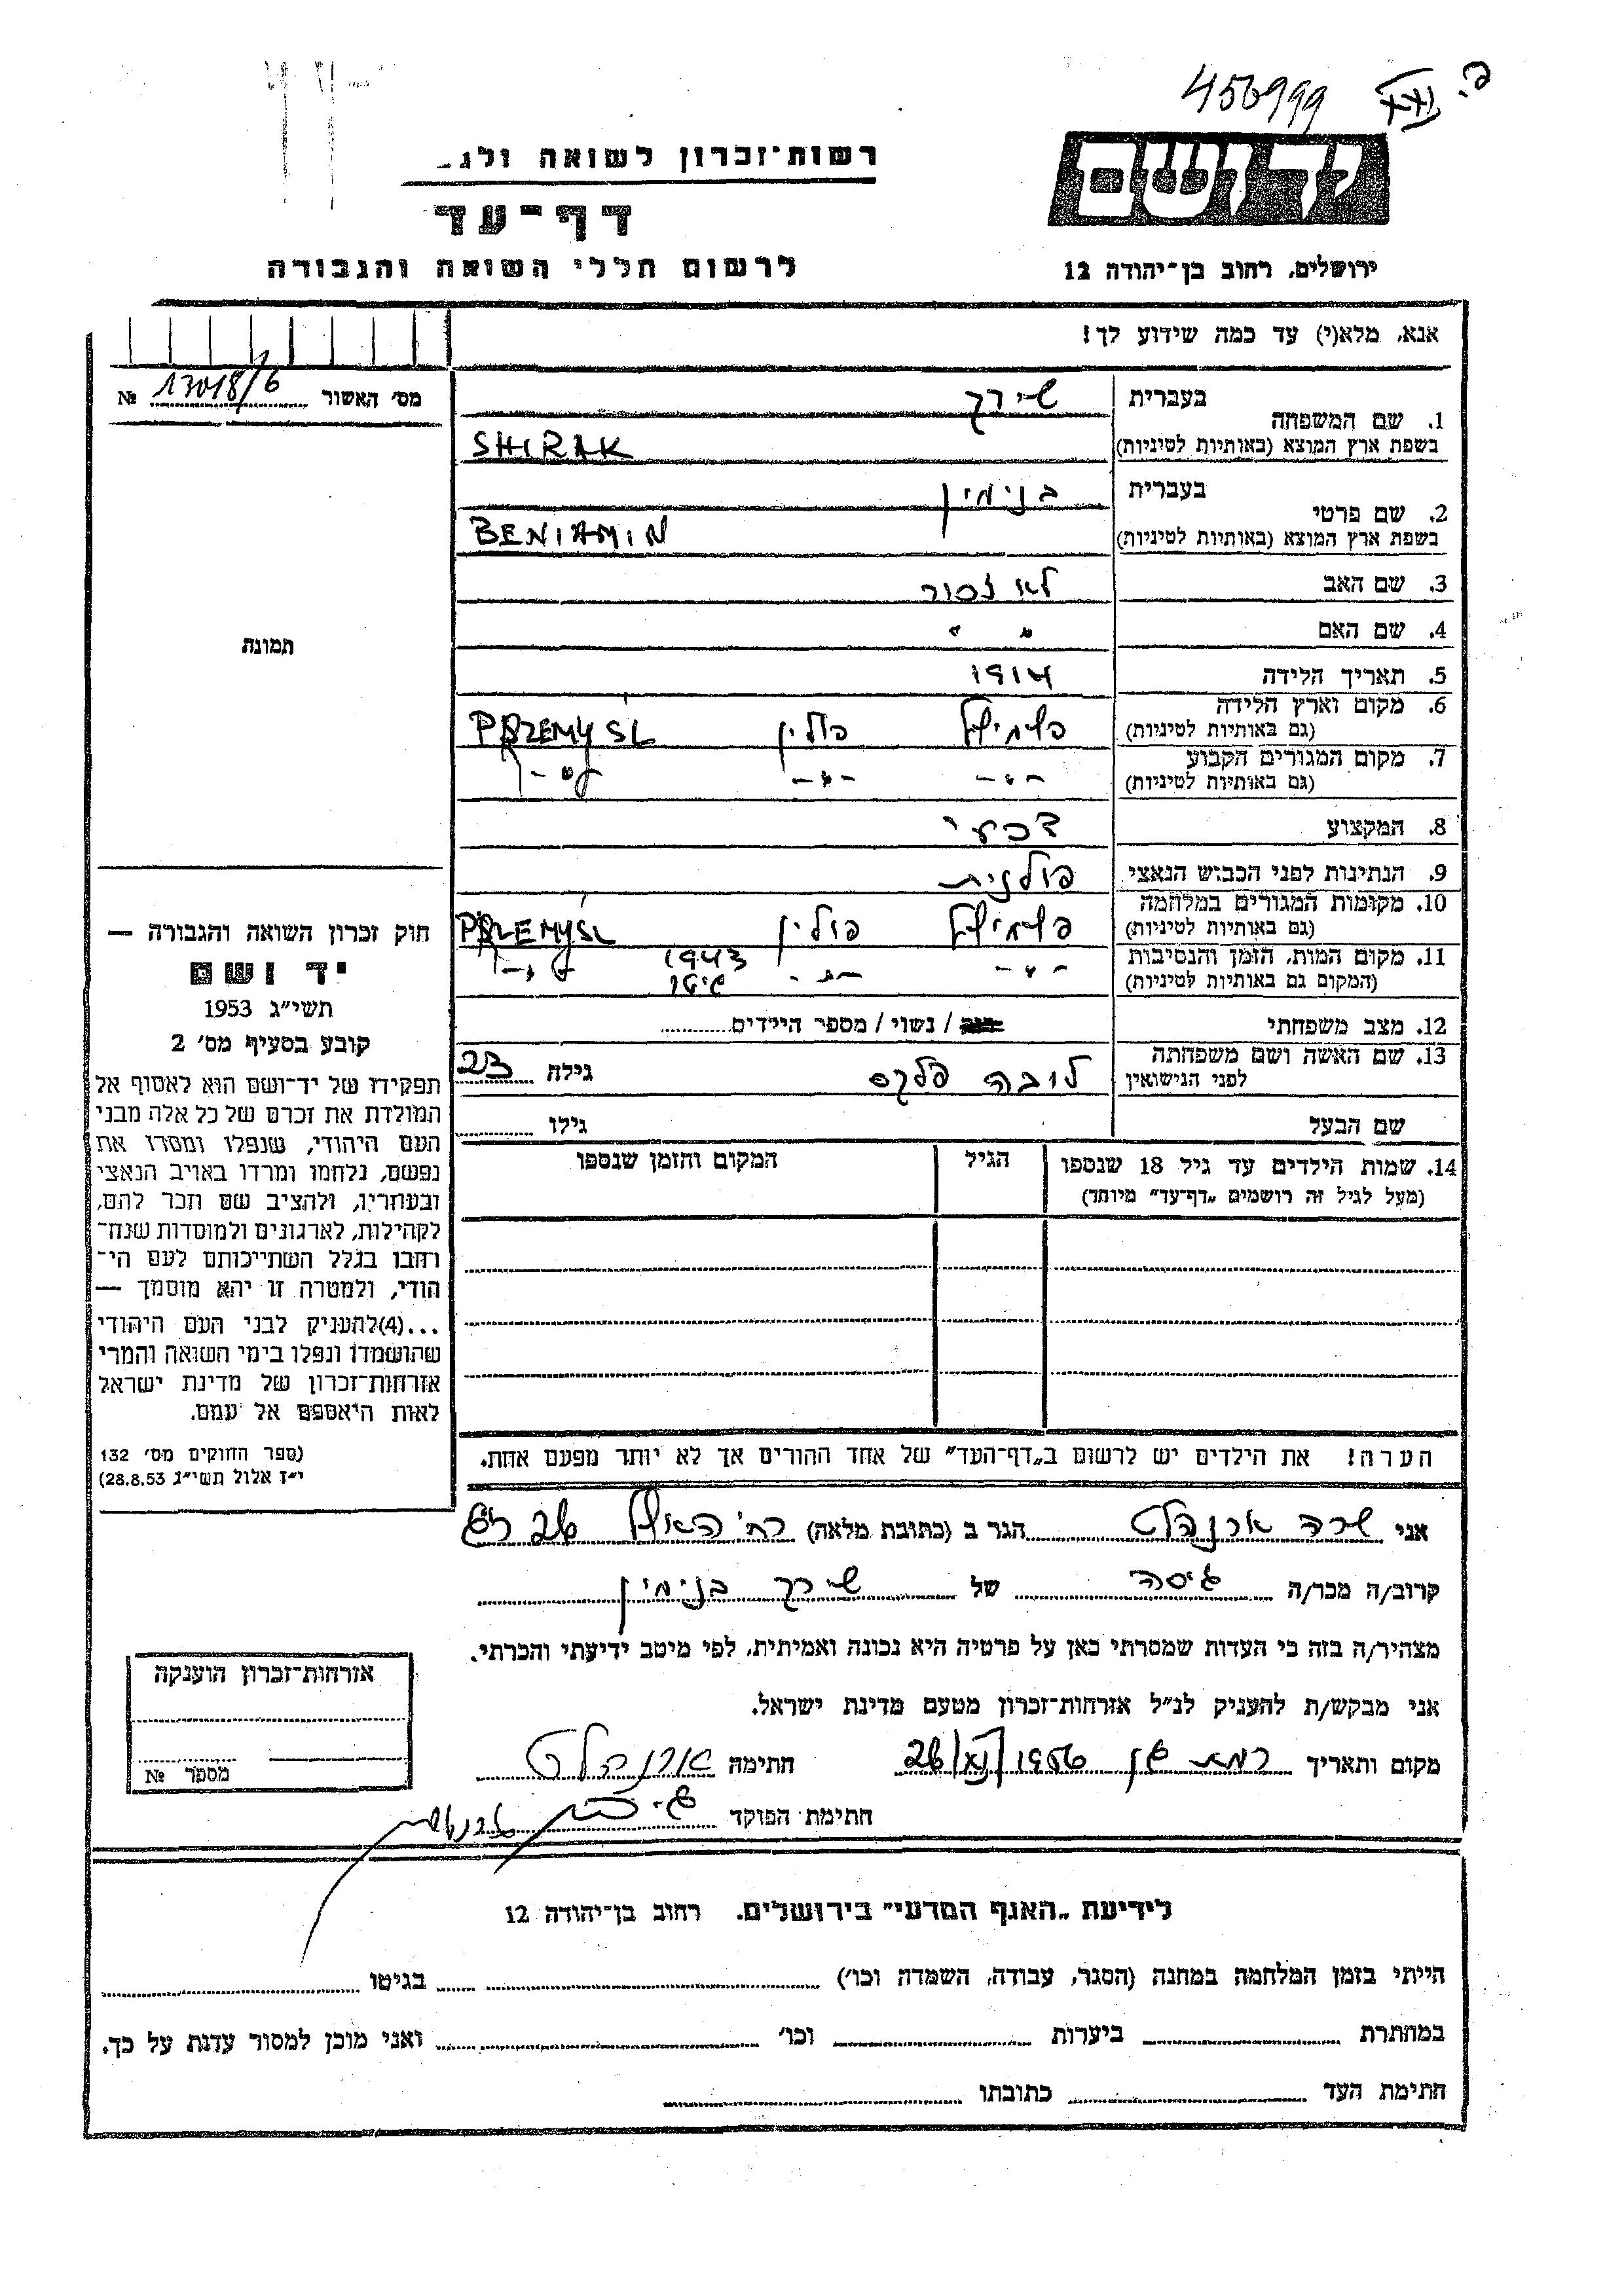 456999
רשות־זכרון לשואה ולג
יד ושם
דף־עד
לרשום חללי השואה והגבורה
ירושלים, רחוב בן־יהודה 12
אנא, מלא(י) עד כמה שידוע לך!
מס' האשור 17018/6 №
1. שם המשפחה
בעברית שירק
בשפת ארץ המוצא (באותיות לטיניות) SHIRAK
2. שם פרטי
בעברית בנימין
בשפת ארץ המוצא (באותיות לטיניות) BENIAMIN
3. שם האב לא זכור
4. שם האם " "
תמונה
5. תאריך הלידה 1914
6. מקום וארץ הלידה פשמישל פולין PRZEMYSL
(גם באותיות לטיניות)
7. מקום המגורים הקבוע -"- -"- -"-
(גם באותיות לטיניות)
8. המקצוע
9. הנתינות לפני הכבוש הנאצי פולנית
10. מקומות המגורים במלחמה פשמישל פולין PRZEMYSL
(גם באותיות לטיניות)
11. מקום המות, הזמן והנסיבות -"- -"- 1943 -"-
(המקום גם באותיות לטיניות) גיטו
12. מצב משפחתי רווק / נשוי / מספר הילדים
13. שם האשה ושם משפחתה לובה פלקס גילה 23
לפני הנישואין
שם הבעל גילו
14. שמות הילדים עד גיל 18 שנספו הגיל המקום והזמן שנספו
(מעל לגיל זה רושמים „דף־עד" מיוחד)
חוק זכרון השואה והגבורה —
יד ושם
תשי"ג 1953
קובע בסעיף מס' 2
תפקידו של יד־ושם הוא לאסוף אל
המולדת את זכרם של כל אלה מבני
העם היהודי, שנפלו ומסרו את
נפשם, נלחמו ומרדו באויב הנאצי
ובעוזריו, ולהציב שם וזכר להם,
לקהילות, לארגונים ולמוסדות שנח־
רבו בגלל השתייכותם לעם הי־
הודי, ולמטרה זו יהא מוסמך —
...(4)להעניק לבני העם היהודי
שהושמדו ונפלו בימי השואה והמרי
אזרחות־זכרון של מדינת ישראל
לאות היאספם אל עמם.
(ספר החוקים מס' 132
י"ז אלול תשי"ג 28.8.53)
הערה! את הילדים יש לרשום ב„דף־העד" של אחד ההורים אך לא יותר מפעם אחת.
אני שרה ארנהלט הגר ב (כתובת מלאה) רח' 26 ר"ג
קרוב/ה מכר/ה גיסה של שירק בנימין
מצהיר/ה בזה כי העדות שמסרתי כאן על פרטיה היא נכונה ואמיתית, לפי מיטב ידיעתי והכרתי.
אני מבקש/ת להעניק לנ"ל אזרחות־זכרון מטעם מדינת ישראל.
מקום ותאריך רמת גן 1956 חתימה ארנהלט
חתימת הפוקד
אזרחות־זכרון הוענקה
מספר №
לידיעת „האגף המדעי" בירושלים. רחוב בן־יהודה 12
הייתי בזמן המלחמה במחנה (הסגר, עבודה, השמדה וכו') בגיטו
במחתרת ביערות וכו' ואני מוכן למסור עדות על כך.
חתימת העד כתובתו